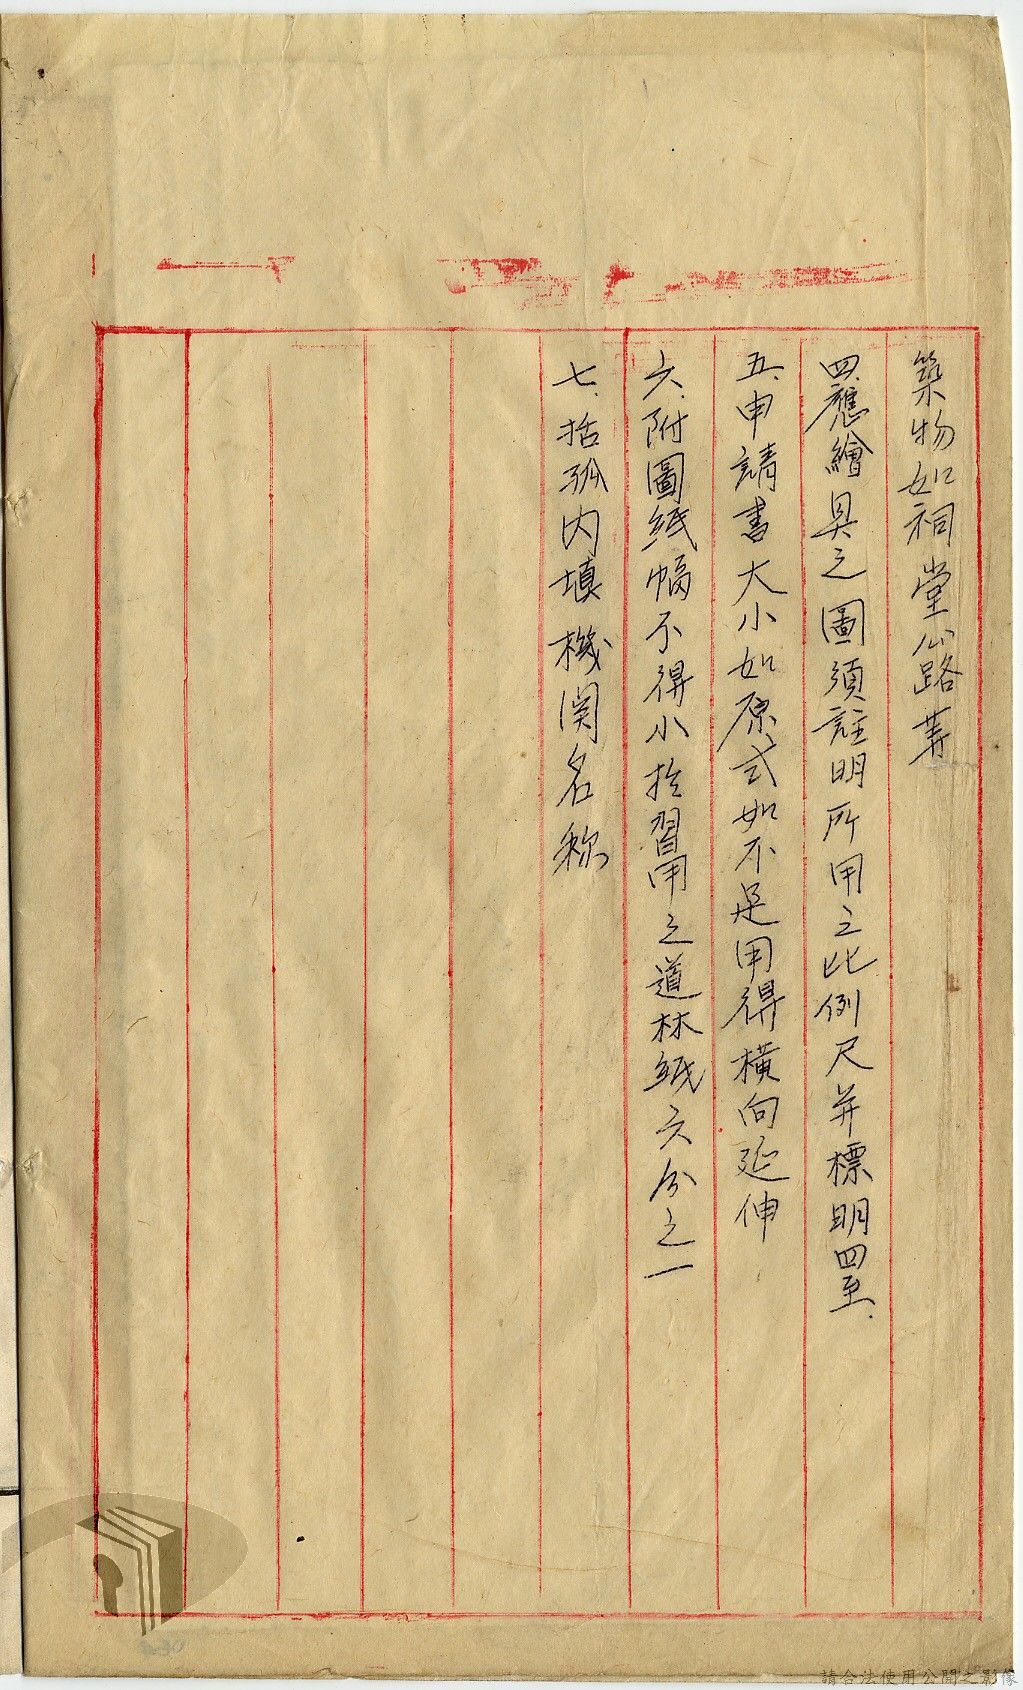 築物如祠堂公路等
四、應繪具之圖須註明所用之比例尺并標明四至.
五、申請書大小如原式如不足用得橫向延伸
六、附圖紙幅不得小於習用之道林紙六分之一
七、括弧内填機関名称
請合法使用公開之影像